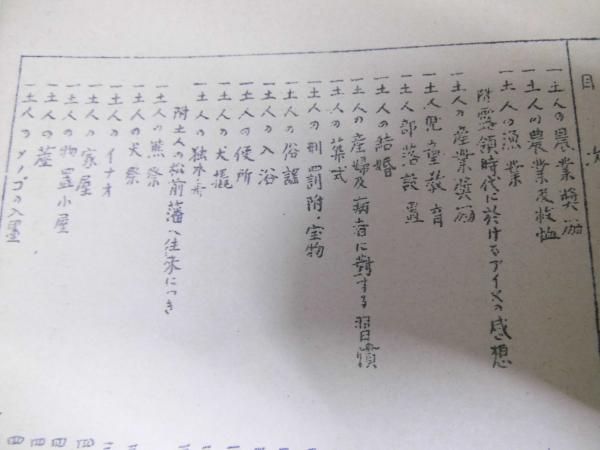 目次
一 土人の農業奨励
一 土人の農業及救恤
一 土人の漁業
附露領時代に於けるアイヌの感想
一 土人の産業奨励
一 土人児童教育
一 土人部落設置
一 土人の結婚
一 土人の産婦及病者に対する習慣
一 土人の葬式
一 土人の刑罰附・宝物
一 土人の俗謡
一 土人の入浴
一 土人の便所
一 土人の犬橇
一 土人の独木舟
附土人の松前藩へ往来につき
一 土人の熊祭
一 土人の犬祭
一 土人のイナオ
一 土人の家屋
一 土人の物置小屋
一 土人の蓙
一 土人のメノコの入墨
四
四
四
四